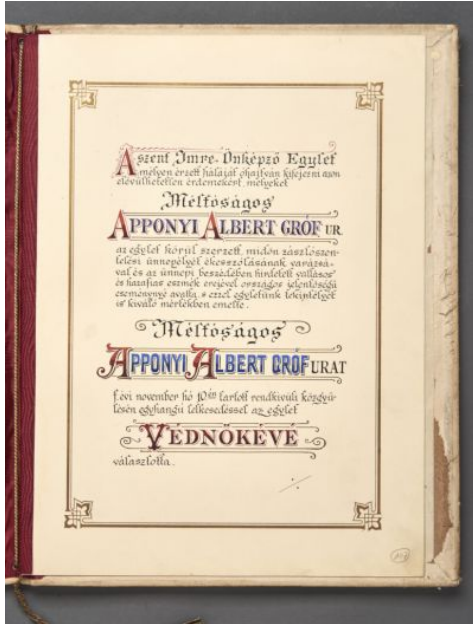 A szent Imre-Önképző Egylet
mélyen érzett háláját óhajtván kifejezni azon
elévülhetetlen érdemekért, melyeket
Méltóságos
APPONYI ALBERT GRÓF UR
az egylet körül szerzett, midőn zászlószen-
telési ünnepélyét ékesszólásának varázsá-
val és az ünnepi beszédében hirdetett vallásos
és hazafias eszmék erejével országos jelentőségű
eseménynyé avatta, s ezzel egyletünk tekintélyét
is kiváló mértékben emelte.
Méltóságos
APPONYI ALBERT GRÓF URAT
f. évi november hó 10én tartott rendkivüli közgyü-
lésén egyhangú lelkesedéssel az egylet
VÉDNÖKÉVÉ
választotta.